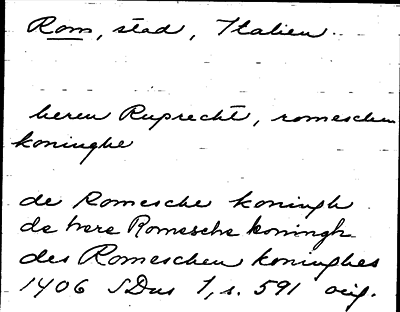 Rom, stad, Italien.
heren Ruprecht, romeschen
koninghe
de Romesche koningh
de here Romesche koningh
des Romeschen koninghes
1406 SDns 1, s. 591 orig.